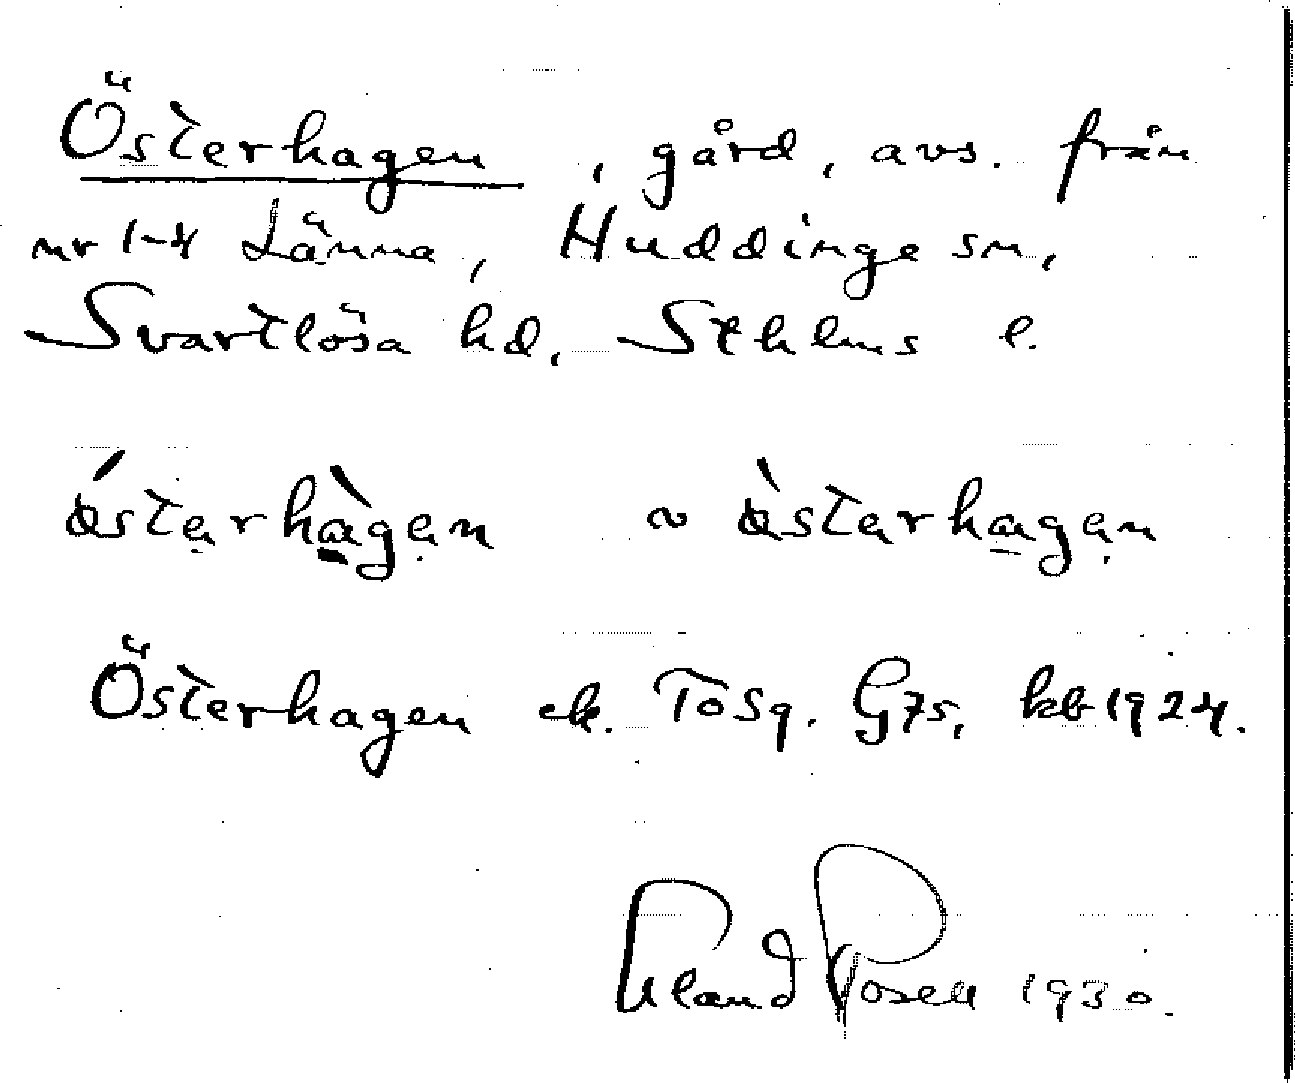 Österhagen, gård, avs. från
nr 1-4 Länna, Huddinge sn,
Svartlösa hd, Sthlms l.
ǿsterhàgen ~ ø̀sterhagen
Österhagen ek. Tosq. G7s, kb 1924.
Rosell 1930.